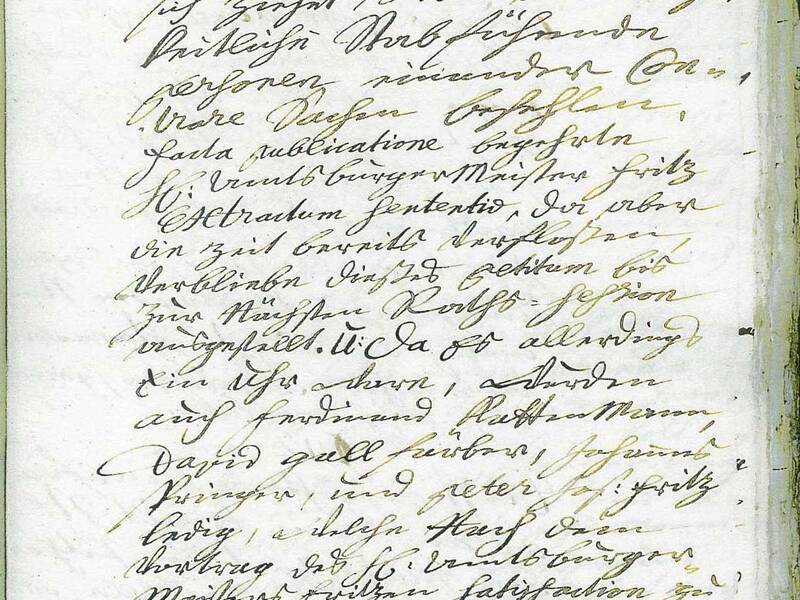 sich ziehet
keitliche Stab führende
Persohnen einander Con-
traire Sachen befehlen,
facta publicatione begehrte
H: Amtsburgermeister Fritz
Extractum Sententiæ, da aber
die Zeit bereits verfloßen,
verbliebe dießes Petitum bis
zur Nächsten Raths=Session
ausgestellt. U: Da es allerdings
Ein Uhr ware, wurden
auch Ferdinand Kattenmann,
David gall färber, Johannes
Springer, und Peter Jos: Fritz
ledig, welche Nach dem
Vortrag des H: Amtsburger
Meisters Fritzen Satisfaction zu